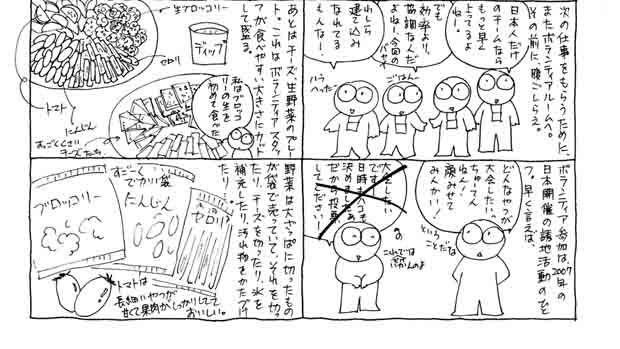 次の仕事をもらうために、
またボランティアルームへ。
その前に、腹ごしらえ。
日本人だけ
のチームなら
もっと早く
上ってるよ
ねー。
効率より、
協調なんだ
よねー、今回の
でも
われしら
建て込み
なれてる
もんなー。
ごはんー
ハラ
へったー
あとはチーズ、生野菜のプレ
ート。これはボランティアスタッ
フが食べやすい大きさにカット
して盛る。
生ブロッコリー
ディップ
セロリ
トマト
にんじん
すっごくくさい
チーズたち
私はブロッコ
リーの生を
初めて食べた
ボランティア参加は、2007年の
日本開催の誘地活動のひと
つ。早く言えば、
どんなやつが
大会したい
ちゅーてん
ねん!
顔みせて
みんかい!
と、いう
ことだなー
大会したい
です。
日時も
決めました。
だから投票
してください!
の
これでは
いかんのよ
野菜は大ざっぱに切ったもの
が袋で売っていて、それを切っ
たり、チーズを切ったり、氷を
補充したり、汚れ物をかたづけ
たり。
すごーく
でかい袋
ブロッコリー
にんじん
セロリ
トマトは
長細いやつが
甘くて果肉がしっかりしてて
おいしい。